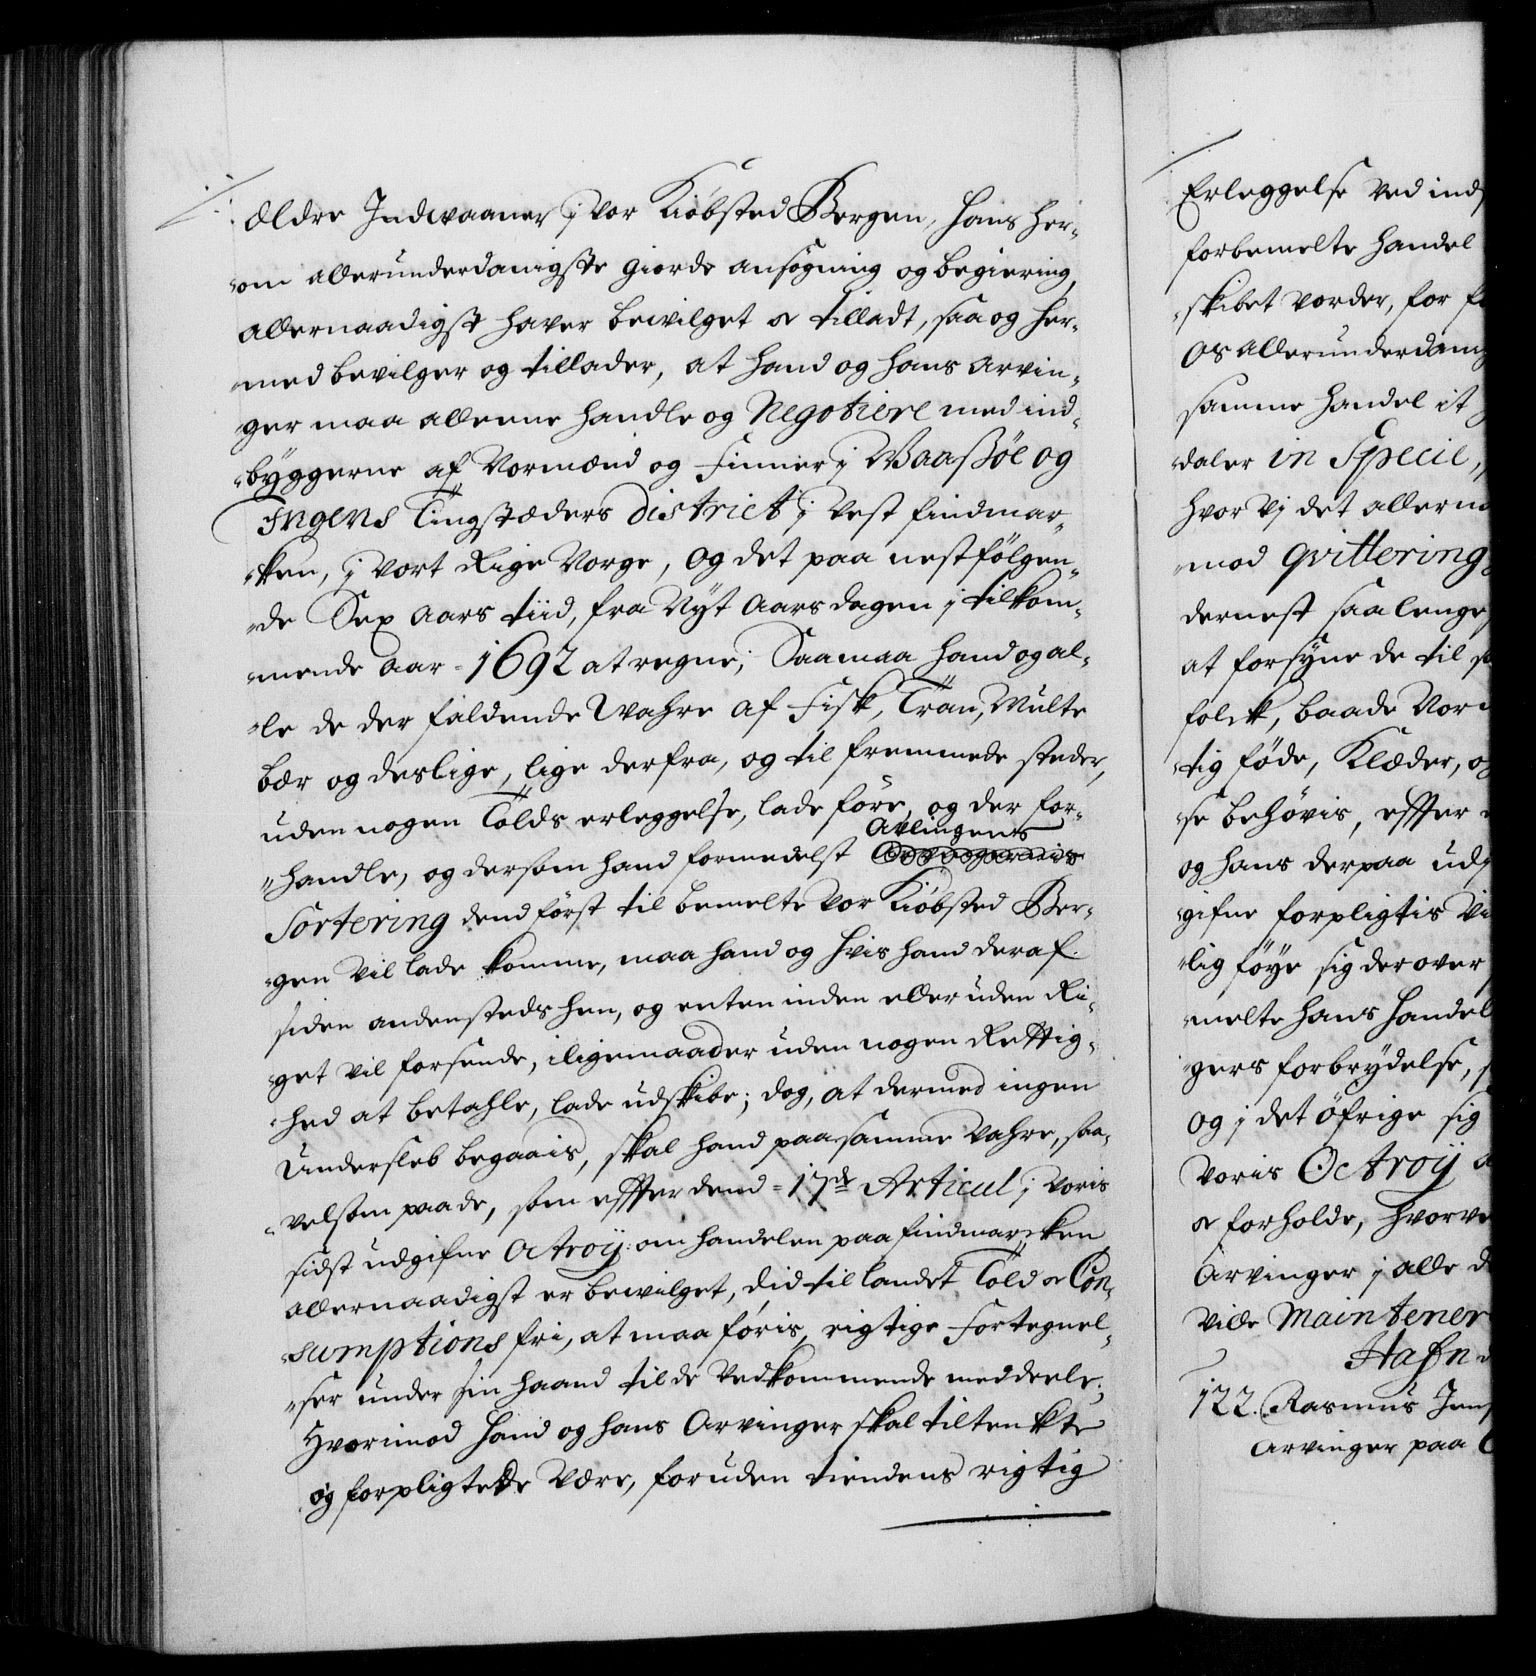 ældre Indwaaner j vor Kiöbsted Bergen, hans her-
om allerunderdanigste giorde ansögning og begiering,
allernaadigst haver bewilget oc tilladt, saa og her-
med bevilger og tillader, at hand og hans arvin-
ger maa alleene handle og Negotiere med ind-
byggerne af Normænd og finner j Waaßöe og
Ingens Tingstæders District j Vest findmar-
ken, j vort Rige Norge, og det paa nestfölgen-
de Sex aars tiid, fra Nyt Aarsdagen j tilkom-
mende aar 1692 at regne; Saa maa hand og al-
le de der faldende Wahre af fisk, Tran, Multe
bær og deslige, lige derfra, og til fremmede steder,
uden nogen Tolds erleggelse, lade före, og der for-
handle, og dersom hand formedelst Avlingens
Sortering dend först til bemelte vor Kiöbsted Ber-
gen vil lade komme, maa hand og hvis hand deraf
siden andensteds hen, og enten inden eller uden Ri-
get vil forsende, iligemaader uden nogen Rettig-
hed at betahle, lade udskibe; dog, at dermed ingen
Undersleb begaais, skal hand paa samme Vahre, saa-
velsom paa de, som effter dend 17de Articul j voris
sidst udgifne Octroij om handelen paa findmarcken
allernaadigst er bewilget, did til landet Told oc Con-
sumptions fri, at maa föris, rigtige Fortegnel-
ser under sin haand til de vedkommende meddeele;
Hvorimod hand og hans Arvinger skal tiltenkte
og forpligtede være, foruden tiendens rigtig
Erleggelse ved ind
forbemelte handel
skibet vorder, for
Os allerunderdanig
samme handel it
daler in Specie,
hvor vj det allerna
mod qvittering
dernest saa lenge
at forsyne de til
folck, baade Nor
tig föde, Klæder, og
se behövis, effter
og hans derpaa ud
gifne forpligtis
lig föye sig derover
melte hans handel
gers forbrydelse,
og j det öfrige sig
voris Octroij
oc forholde, hvorve
Arvinger j alle
ville Maintener
Hafn
122. Rasmus Jens
Arvinger paa